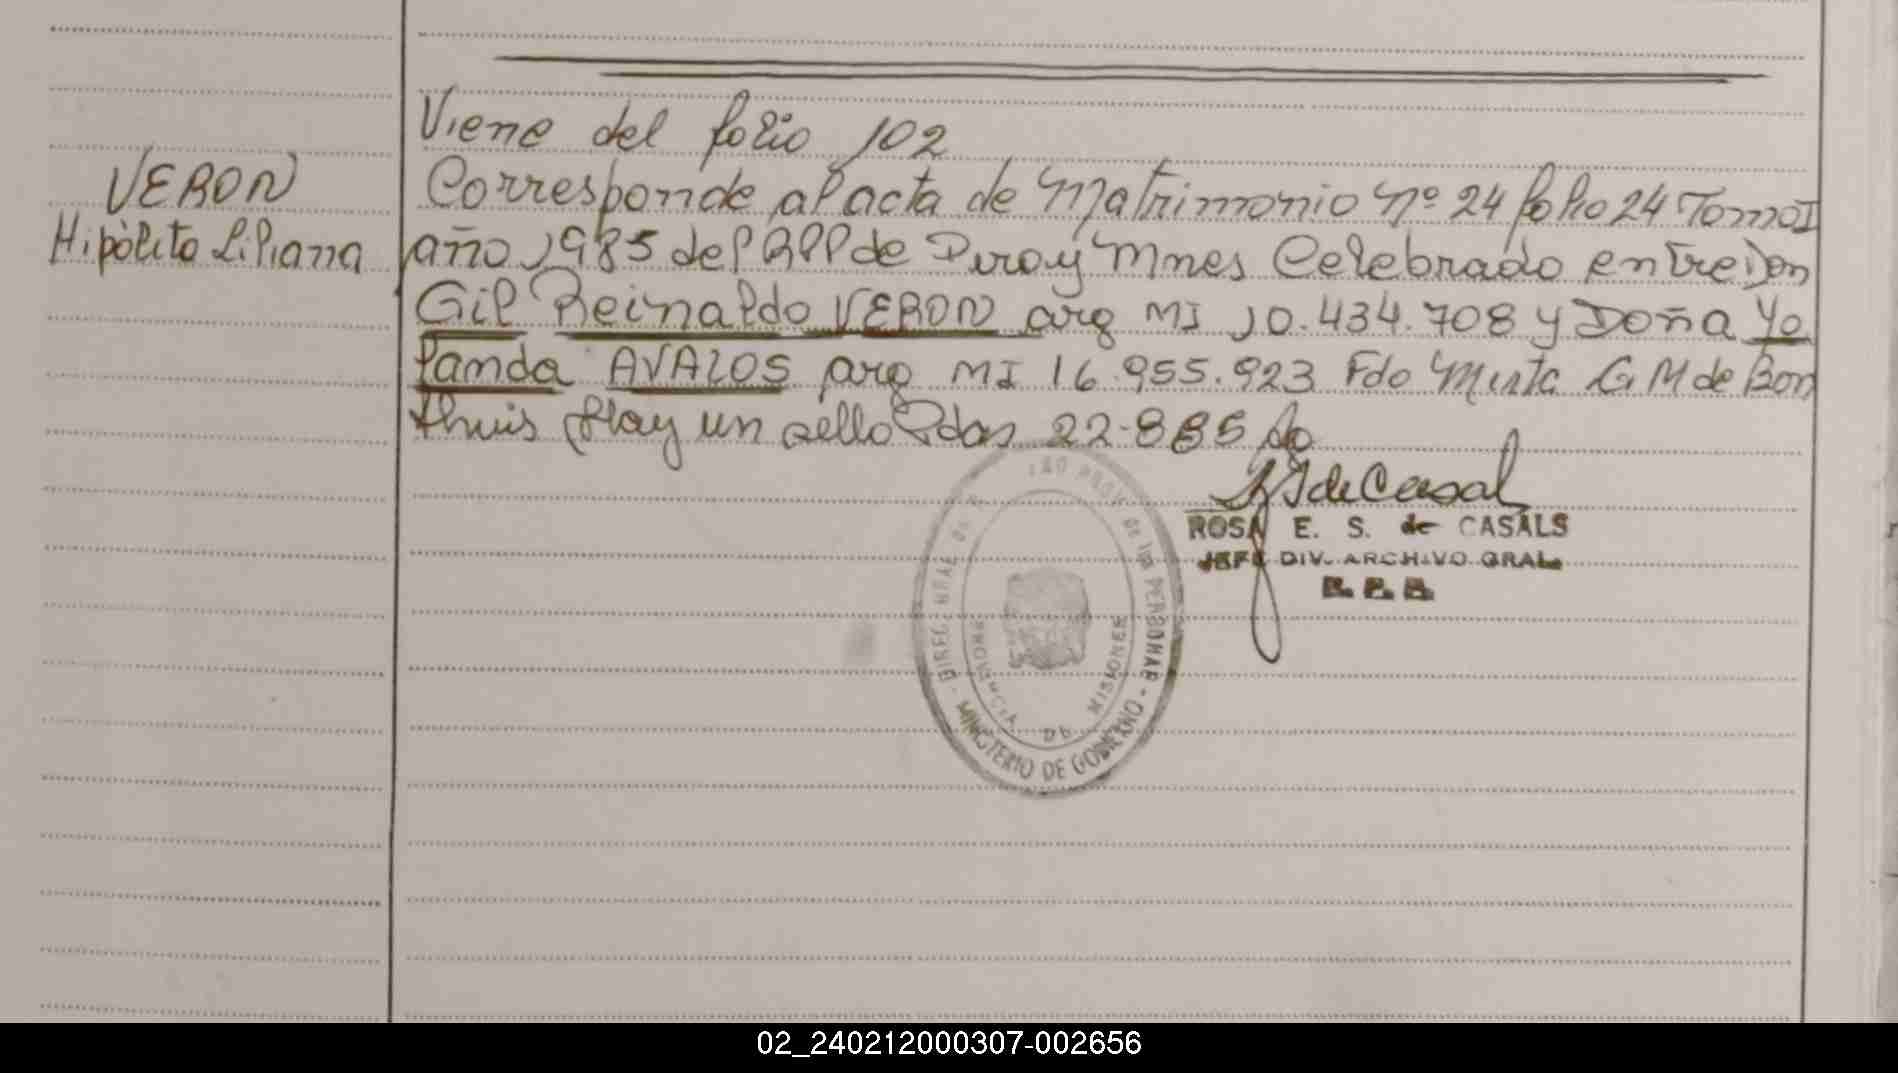 Viene del folio 102
VERON
Hipólito Liliana
Corresponde al acta de Matrimonio Nº 24 folio 24 Tomo I
año 1985 del RPP de Piray Mnes Celebrado entre Don
Gil Reinaldo VERON arg MI 10.434.708 y Doña Yo
landa AVALOS arg MI 16.955.923 Fdo Mirta G M de Bon
thuis Hay un sello Pdas 22-885
ROSA E. S. de CASALS
JEFE DIV. ARCHIVO GRAL.
PROV. de las PERSONAS - MINISTERIO DE GOBIERNO -
PROVINCIA DE MISIONES
02_240212000307-002656